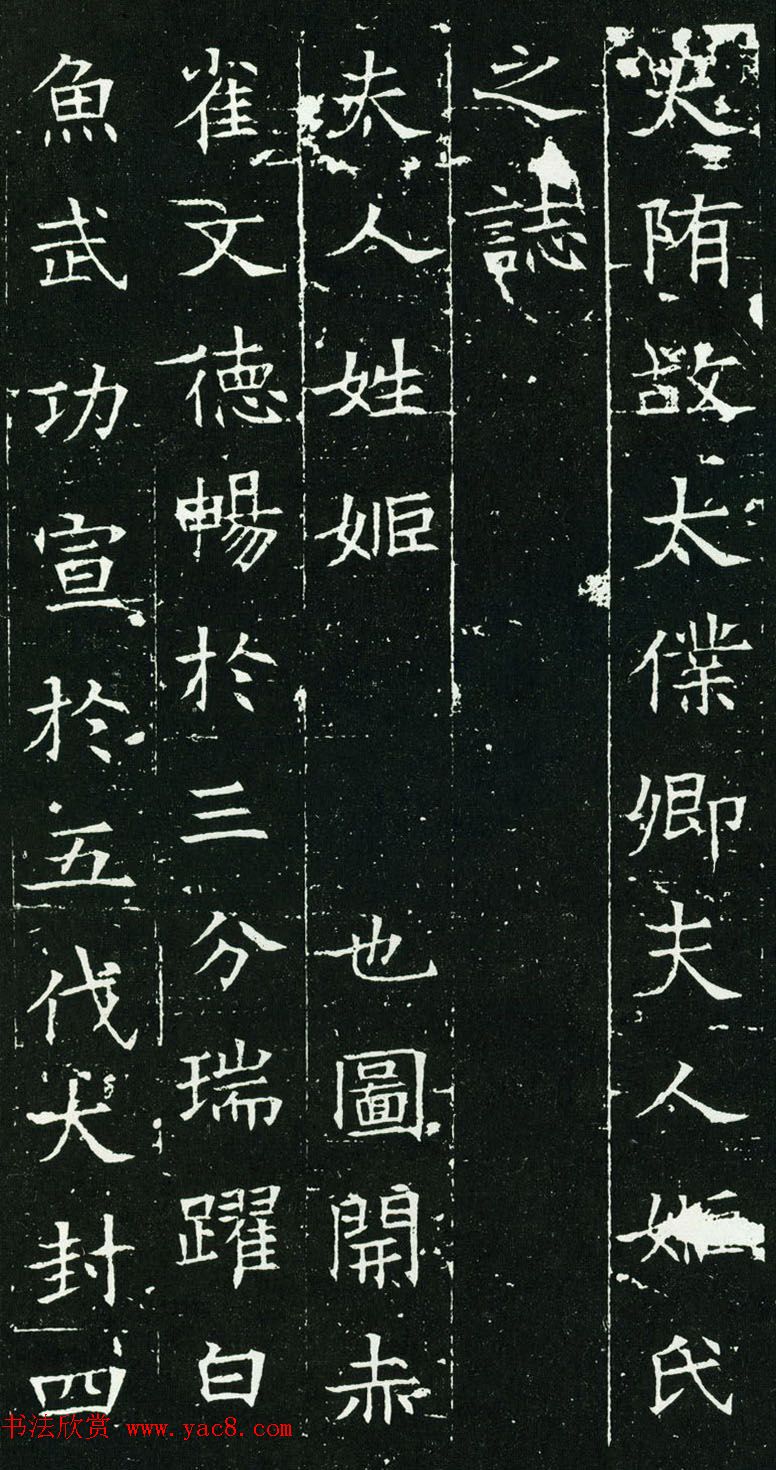 大陏故太僕卿夫人姬氏
之誌
夫人姓姬　也圖開赤
雀文徳暢於三分瑞躍白
魚武功宣於五伐大封四
书法欣赏 www.yac8.com